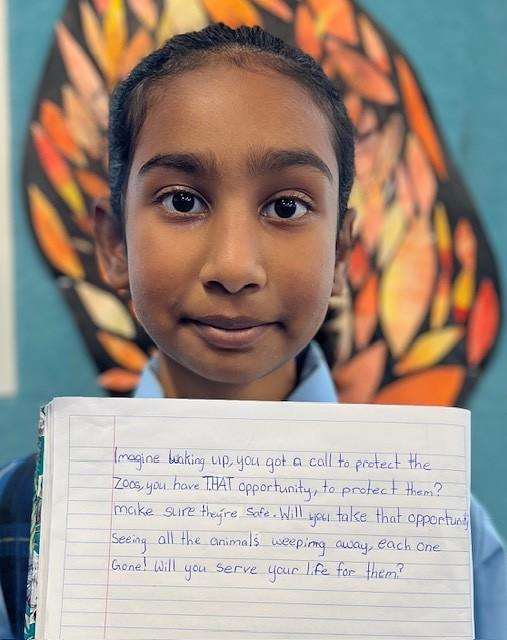 Imagine waking up, you got a call to protect the
Zoos, you have THAT opportunity, to protect them?
make sure they're safe. Will you take that opportunity
seeing all the animals weeping away, each one
Gone! Will you serve your life for them?